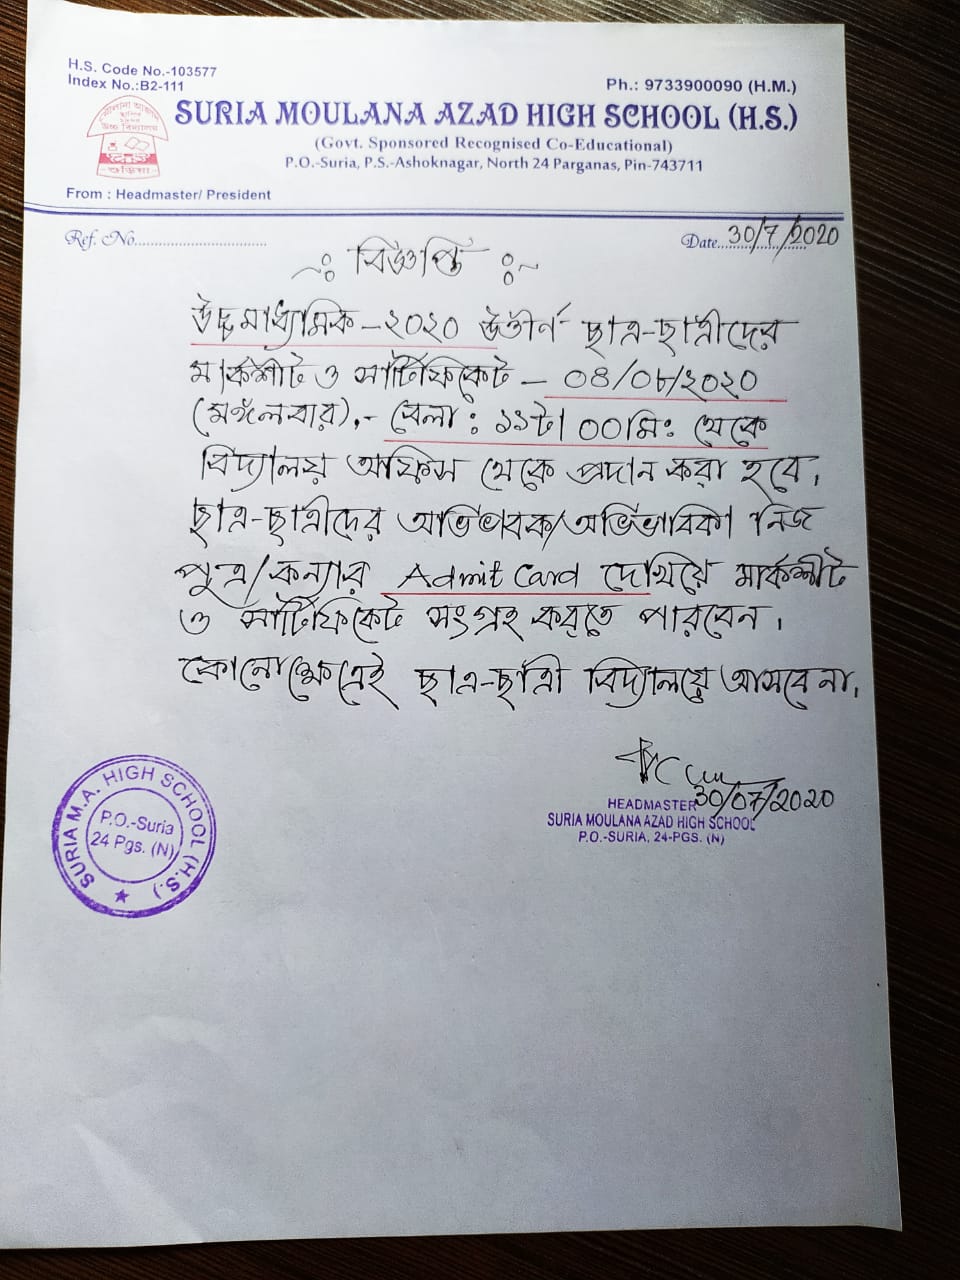 H.S. Code No.-103577
Index No.:B2-111
Ph.: 9733900090 (H.M.)
SURIA MOULANA AZAD HIGH SCHOOL (H.S.)
(Govt. Sponsored Recognised Co-Educational)
P.O.-Suria, P.S.-Ashoknagar, North 24 Parganas, Pin-743711
From : Headmaster/ President
Ref. No.
Date. 30/7/2020
বিজ্ঞপ্তি
উচ্চমাধ্যমিক - ২০২০ উত্তীর্ন ছাত্র-ছাত্রীদের
মার্কশীট ও সার্টিফিকেট - ০৪/০৮/২০২০
(মঙ্গলবার),- বেলা : ১১টা ০০মিঃ থেকে
বিদ্যালয় অফিস থেকে প্রদান করা হবে।
ছাত্র-ছাত্রীদের অভিভাবক/অভিভাবিকা নিজ
পুত্র/কন্যার Admit Card দেখিয়ে মার্কশীট
ও সার্টিফিকেট সংগ্রহ করতে পারবেন।
কোনোক্ষেত্রেই ছাত্র-ছাত্রী বিদ্যালয়ে আসবে না।
30/07/2020
HEADMASTER
SURIA MOULANA AZAD HIGH SCHOOL
P.O.-SURIA, 24-PGS. (N)
SURIA M.A. HIGH SCHOOL (H.S.)
P.O.-Suria
24 Pgs. (N)